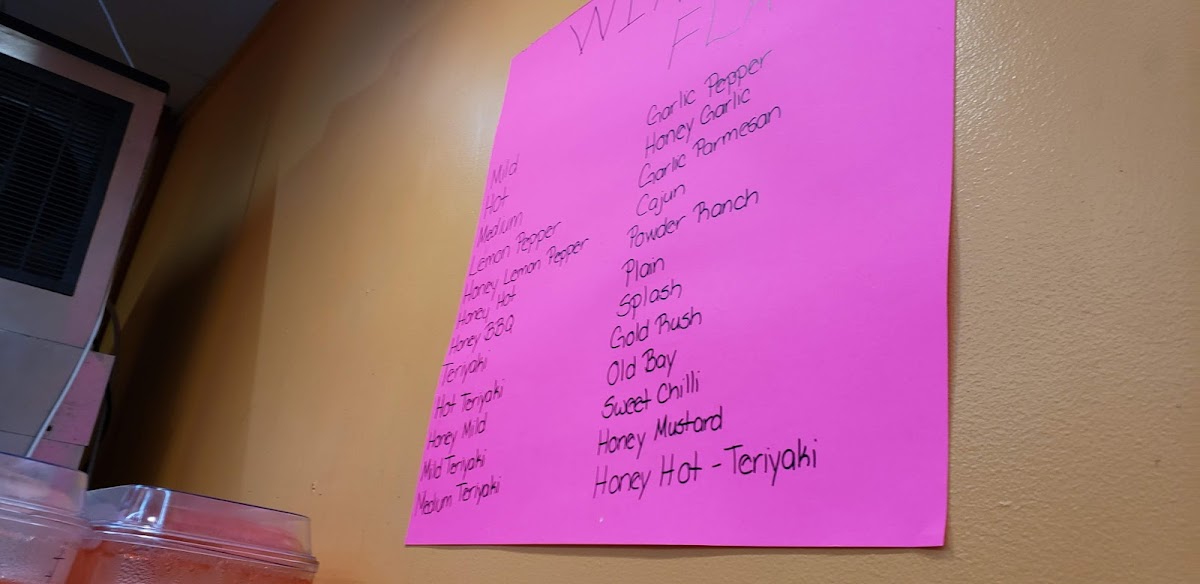 Mild
Hot
Medium
Lemon Pepper
Honey Lemon Pepper
Honey Hot
Honey BBQ
Teriyaki
Hot Teriyaki
Honey Mild
Mild Teriyaki
Medium Teriyaki
Garlic Pepper
Honey Garlic
Garlic Parmesan
Cajun
Powder Ranch
Plain
Splash
Gold Rush
Old Bay
Sweet Chilli
Honey Mustard
Honey Hot - Teriyaki